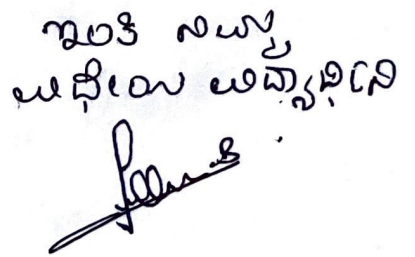 ಇಂತಿ ನಿಮ್ಮ
ವಿಧೇಯ ವಿದ್ಯಾರ್ಥಿನಿ